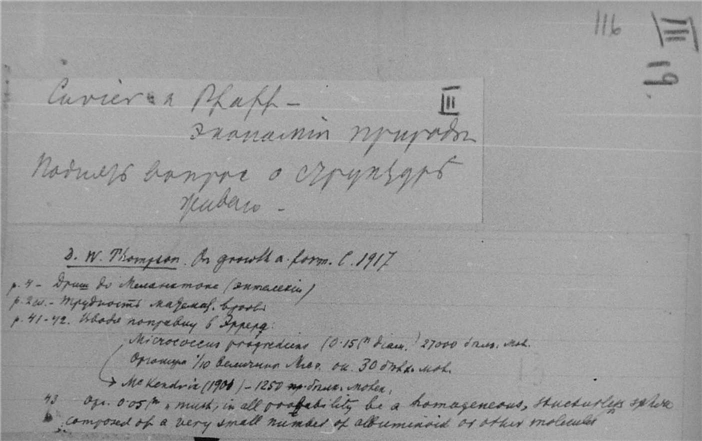 116
III
19.
III
Cuvier a Pfaff –
экономія природы
Поднять вопрос о структурѣ
живого –
D. W. Thompson. On growth a. form. C. 1917
p. 4 – Дриш до Меланхтона (энтелехіи)
трудность
p. 41-42. поправку
Micrococcus progrediens (0.15 27000 бѣлк. мол.
1/10 величины 30 бѣлк. мол.
McKendrick (1901) – 1250
43 0.05 must, in all probability be a homogeneous, structureless sphere
composed of a very small number of albuminoid or other molecules